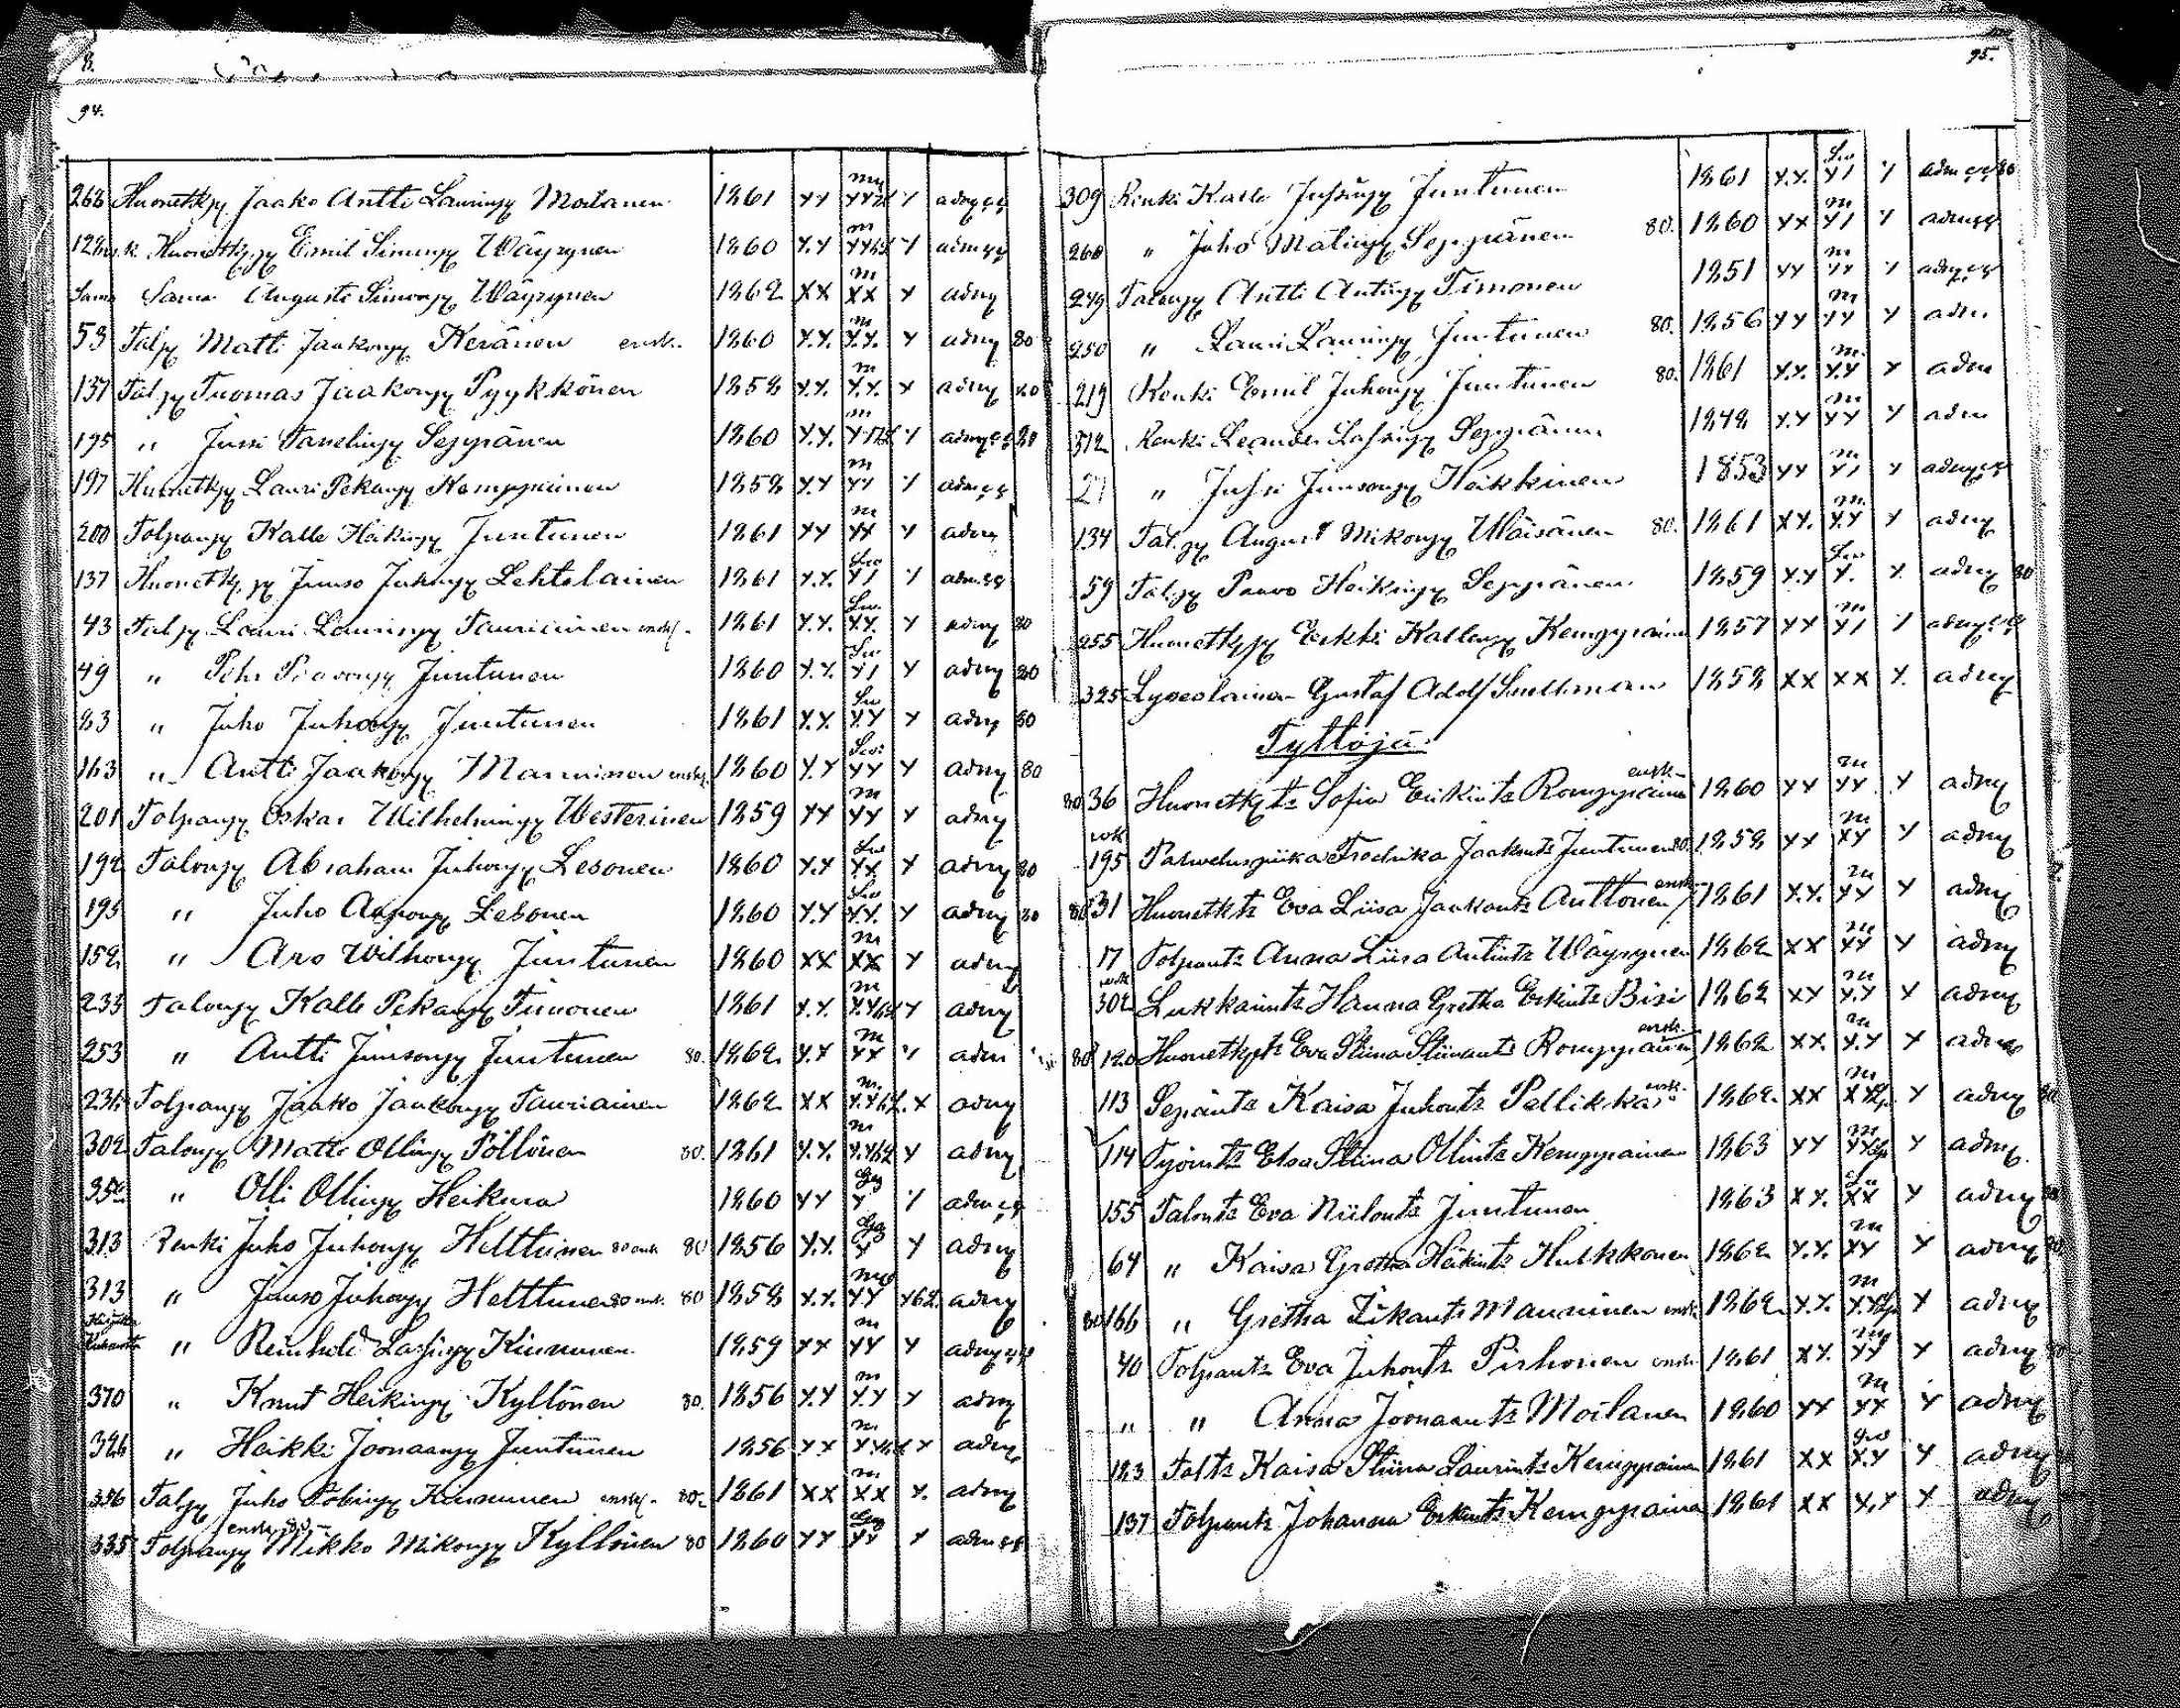 94.
268 Huonetkpj Jaako Antti Laurinpj Moilanen 1861 XX XX X admj
128 k. Huonetkpj Emil Simonpj Wäyrynen 1860 X.X XX X
Sama Sama August Simonpj Wäyrynen 1862 XX XX X admj
53 Talpj Matti Jaakonpj Keränen ensk. 1860 X.X. X.X. X admj 80
137 Talpj Tuomas Jaakonpj Pyykkönen 1858 X.X. X.X. X admj 80
195 " Jussi Tanelinpj Seppänen 1860 X.X. X
197 Huonetkpj Lauri Pekanpj Kemppainen 1858 X.X XX X
200 Tolpanpj Kalle Heikinpj Juntunen 1861 XX XX X admj
137 Huonetk.pj Juuso Juhonpj Lehtolainen 1861 X.X. X
43 Talpj Lauri Laurinpj Tauriainen ensk. 1861 X.X. XX. X admj 80
49 " Pehr Paavonpj Juntunen 1860 X.X. X admj 80
83 " Juho Juhonpj Juntunen 1861 X.X. X.X X admj 80
163 " Antti Jaakonpj Manninen ensk. 1860 X.X XX X admj 80
201 Tolpanpj Oskar Wilhelminpj Westerinen 1859 XX XX X admj
192 Talonpj Abraham Juhonpj Lesonen 1860 X.X XX X admj 80
195 " Juho Aaponpj Lesonen 1860 X.X X.X. X admj 80
158 " Aro Wilhonpj Juntunen 1860 XX XX X admj
233 Talonpj Kalle Pekanpj Timonen 1861 X.X. X admj
253 " Antti Juusonpj Juntunen 80. 1862 X.X XX X adm
236 Tolpanpj Jaako Jaakonpj Tauriainen 1862 XX X admj
302 Talonpj Matti Ollinpj Pöllönen 80. 1861 X.X. X admj
358 " Olli Ollinpj Heikura 1860 XX X
313 Renki Juho Juhonpj Helttunen 80 1856 X.X. X X admj
313 " Juuso Juhonpj Helttunen 80 1858 X.X. XX X62. admj
" Reinhold Lassinpj Kinnunen 1859 XX XX X
370 " Knut Heikinpj Kyllönen 80. 1856 X.X X.X X admj
326 " Heikki Joonaanpj Juntunen 1856 XX X admj
336 Talpj Juho Tobinpj Kinnunen ensk. 80. 1861 XX XX X. admj
335 Tolpanpj Mikko Mikonpj Kyllönen 80 1860 XX XX X
95.
309 Renki Kalle Jussinpj Juntunen 1861 X.X. X
260 " Juho Matinpj Seppänen 80. 1860 XX X
249 Talonpj Antti Antinpj Timonen 1851 XX XX X
250 " Lauri Laurinpj Juntunen 80. 1856 XX XX X adm
219 Renki Emil Juhonpj Juntunen 80. 1861 X.X. X.X X adm
312 Renki Leander Lassinpj Seppänen 1848 X.X XX X adm
27 " Jussi Juusonpj Heikkinen 1853 XX X
134 Tal.pj August Mikonpj Wäisänen 80. 1861 XX. X.X X admj
59 Talpj Paavo Heikinpj Seppänen 1859 X.X X. X. admj 80
255 Huonetkpj Erkki Kallenpj Kemppainen 1857 XX X
325 Lyseolainen Gustaf Adolf Snellman 1858 XX XX X. admj
Tyttöjä.
80 36 Huonetkpts Sofia Erkints Romppainen ensk. 1860 XX XX X admj
195 Palweluspiika Fredrika Jaakonts Juntunen 80. 1858 XX XX X admj
80 31 Huonetkts Eva Liisa Jaakonts Anttonen ensk. 1861 X.X. XX X admj
17 Tolpants Anna Liisa Antints Wäyrynen 1862 XX XX X admj
302 Lukkarints Hanna Gretha Erkints Bisi 1862 XX X.X X admj
80 120 Huonetkpts Eva Stiina Stiinants Romppainen ensk. 1862 XX. X.X X admj
113 Sepänts Kaisa Juhonts Pellikka ensk. 1862 XX X admj
114 Työmts Elsa Stiina Ollints Kemppainen 1863 XX X admj
155 Talonts Eva Niilonts Juntunen 1863 XX. XX X admj
64 " Kaisa Gretha Heikints Hulkkonen 1862 X.X. XX X admj
80 166 " Gretha Iikants Manninen ensk. 1862 X.X. X admj
40 Tolpants Eva Juhonts Pirhonen ensk. 1861 XX. XX X admj
" " Anna Joonaants Moilanen 1860 XX XX X admj
183 Talts Kaisa Stiina Laurints Kemppainen 1861 XX X.X X admj
137 Tolpants Johanna Erkints Kemppainen 1861 XX X.X X admj